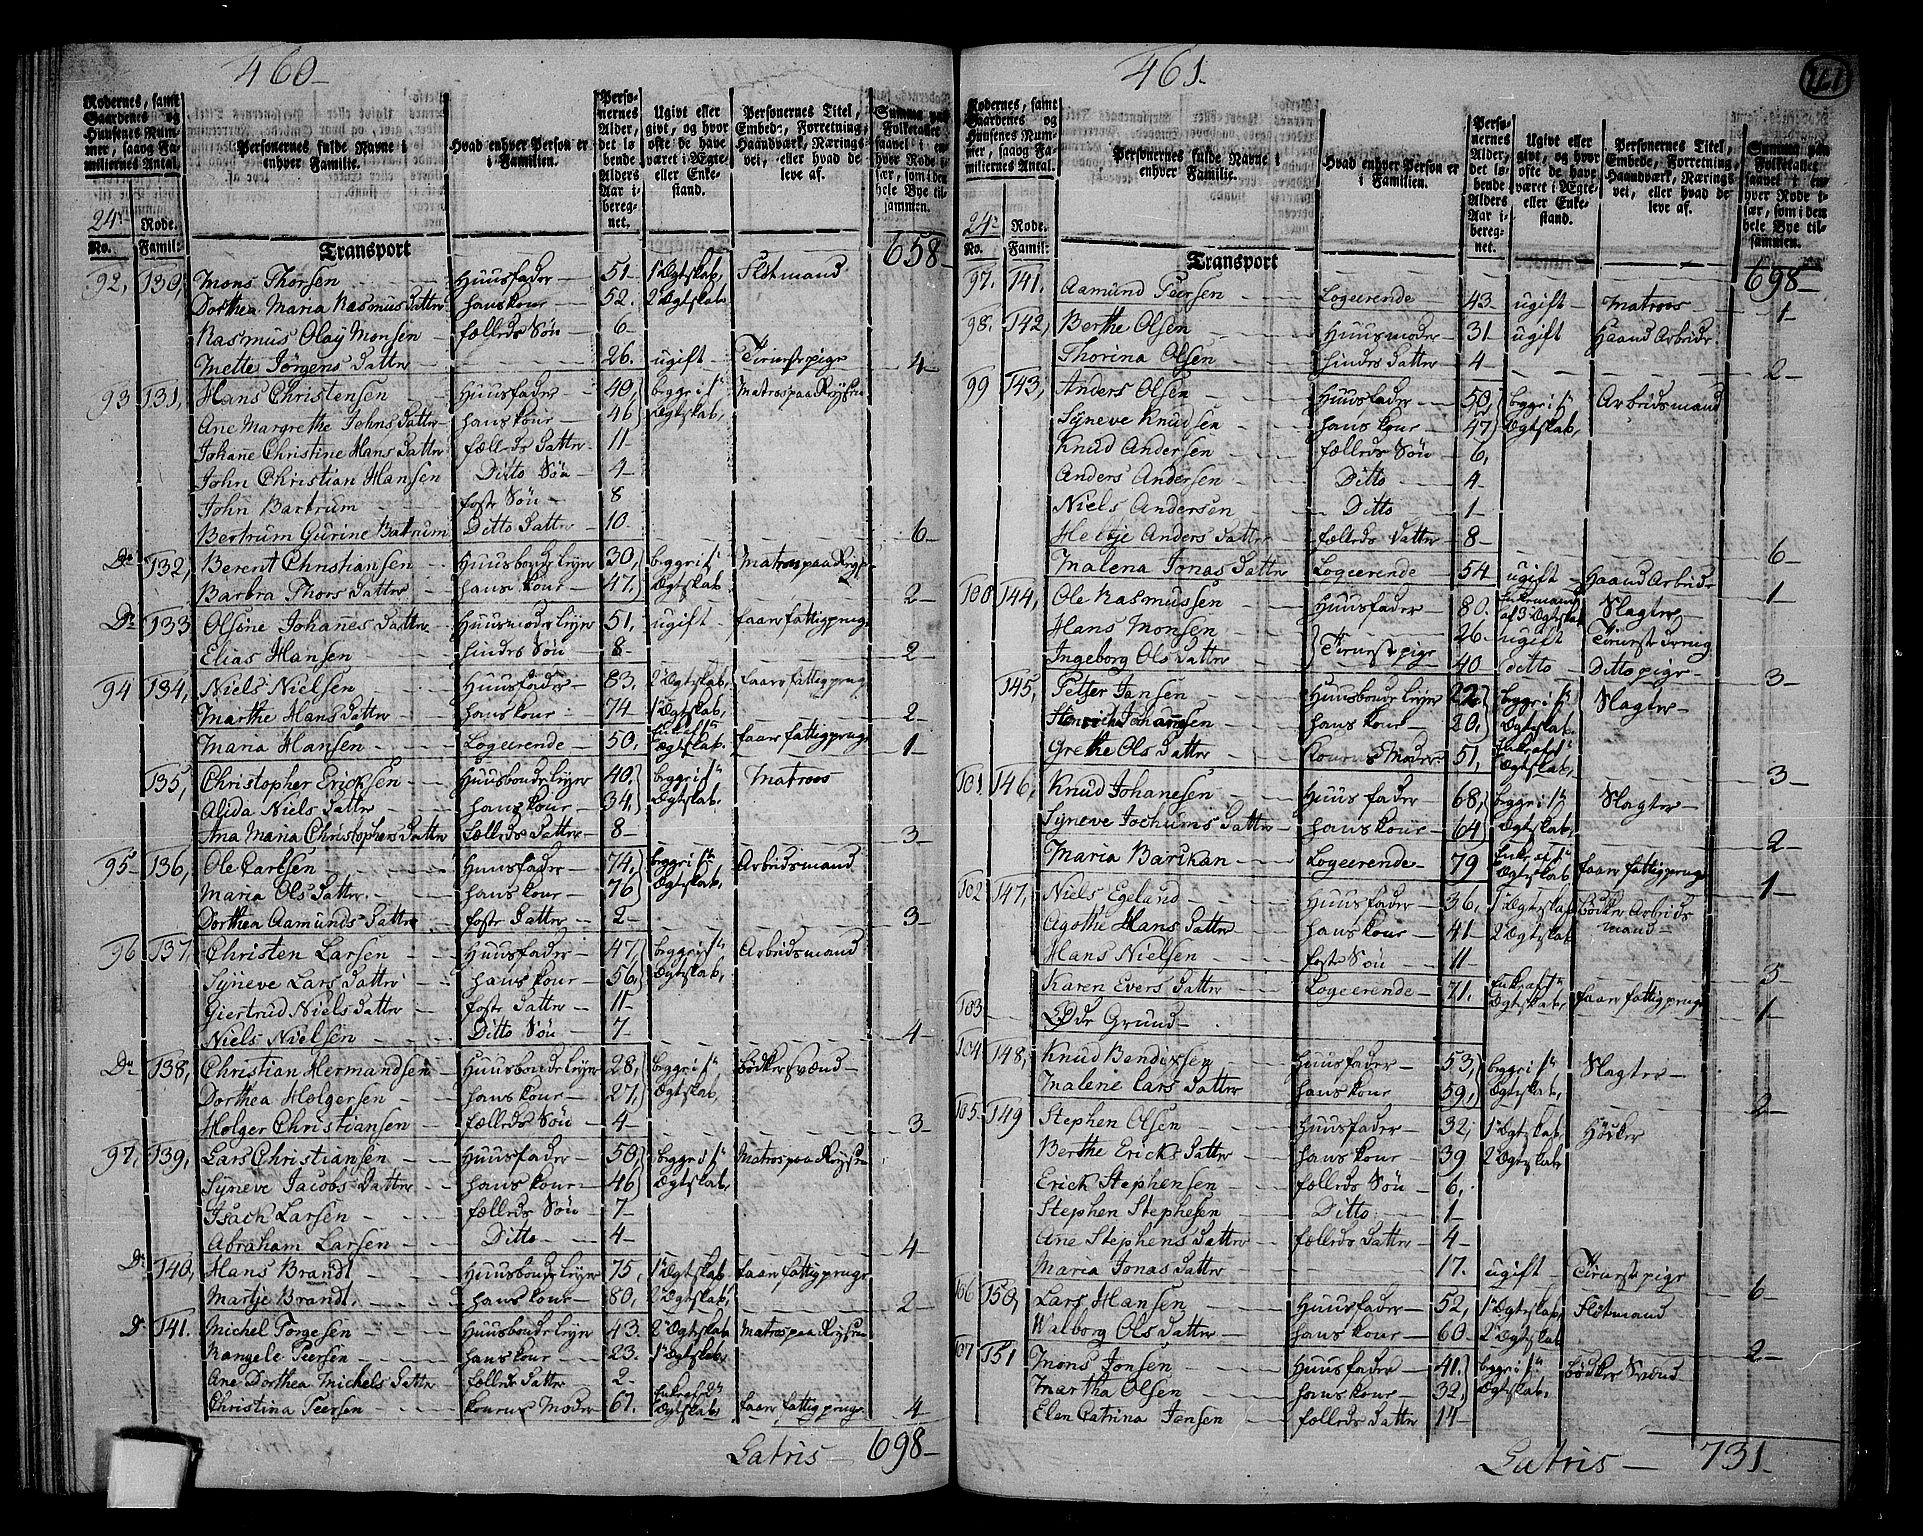 460
Rodernes, samt Gaardenes og Huusenes Nummer, saavog Familiernes Antal.
Personernes fulde Navne i enhver Familie.
Hvad enhver Person er i Familien.
Personernes Alder, det løbende Alders Aar iberegnet.
Ugivt eller givt, og hvor ofte de have været i Ægte- eller Enkestand.
Personernes Titel, Embede, Forretning, Haandværk, Næringsvei, eller hvad de leve af.
Summa paa Folketallet saavel i enhver Rode især, som i den hele Bye tilsammen.
24de Rode.
No. Famil: Transport 658
92, 130, Mons Thorsen Huusfader 51 1 Ægtskab, Slotmand
Dorthea Maria Rasmus Datter hans kone 52. 2 Ægtskab
Rasmus Olay Monsen fælleds Søn 6
Mette Jørgens Datter 26. ugift Tieneste pige 4
93 131, Hans Christensen Huusfader 40, begge i 1ste Matros paa Reysen
Ane Margrethe Jehns Datter hans kone 46 Ægtskab,
Johane Christine Hans Datter fælleds Datter 11
John Christian Hansen Ditto Søn 4
John Bartrum foster Søn 8
Bertrum Gurine Batrum Ditto Datter 10. 6
Do 132, Berent Christiansen Huusbonde leyer 30, begge i 1ste Matros paa Reyse
Barbra Thors Datter hans kone 47, Ægtskab, 2
Do 133 Olsine Johanes Datter Huusmoder leyer 51, ugift faaer fattig penge
Elias Hansen hindes Søn 8 2
94 134, Niels Nielsen Huusfader 83, 2 Ægtskab, faaer fattig penge
Marthe Hans Datter hans kone 74 1 Ægtskab, 2
Maria Hansen Logeerende 50, Enke af 1ste Ægtskab. faaer fattig penge 1
135, Christopher Ericksen Huusbonde leyer 40, begge i 1ste Matroos
Alida Niels Datter hans kone 34, Ægtskab.
Ana Maria Christophers Datter fælleds Datter 8 3
95 136, Ole Carlsen Huusfader 74, begge i 2de Arbeidsmand
Maria Ols Datter. hans kone 76 Ægtskab,
Dorthea Aamunds Datter foster Datter 2 3
96 137 Christen Larsen Huusfader 47, begge i 1ste Arbeidsmand
Syneve Lars Datter hans kone 56, Ægtskab,
Giertrud Niels Datter foster Datter 11
Niels Nielsen Ditto Søn 7 4
Do 138, Christian Hermandsen Huusbonde leyer 28, begge i 1ste Bødker Svend
Dorthea Holgersen hans kone 27, Ægtskab,
Holger Christiansen fælleds Søn 4 3
97, 139, Lars Christiansen Huusfader 50 begge i 1ste Matros paa Reysen
Syneve Jacobs Datter hans kone 46 Ægtskab,
Isach Larsen fælleds Søn 7
Abraham Larsen Ditto 4 4
Do 140, Hans Brandt Huusbonde leyer 75, 1 Ægtskab faaer fattig penge
Martje Brandt, hans kone 80, 2 Ægtskab, 2
Do 141. Michel Torgesen Huusbonde leyer 43. 2 Ægtskab Matros paa Reysen
Mangele Peersen hans kone 23. 1 Ægtskab,
Ane Dorthea Michels Datter fælleds Datter 2
Christina Peersen konens Moder 67. Enke af 2de Ægtskab faaer fattig penge 4
Latris 698
461.
461
Rodernes, samt Gaardenes og Huusenes Nummer, saavog Familiernes Antal.
Personernes fulde Navne i enhver Familie.
Hvad enhver Person er i Familien.
Personernes Alder, det løbende Alders Aar iberegnet.
Ugivt eller givt, og hvor ofte de have været i Ægte- eller Enkestand.
Personernes Titel, Embede, Forretning, Haandværk, Næringsvei, eller hvad de leve af.
Summa paa Folketallet saavel i enhver Rode især, som i den hele Bye tilsammen.
24de Rode.
No. Famil: Transport 698
97. 141. Aamund Peersen Logeerende 43. ugift Matroos 1
98. 142, Berthe Olsen Huusmoder 31 ugift Haand Arbeide
Thorina Olsen hindes Datter 4 2
99 143, Anders Olsen Huusfader 50 begge i 1ste Arbeidsmand
Syneve Knudsen hans kone 47 Ægtskab,
Knud Andersen fælleds Søn 6,
Anders Andersen Ditto 4
Niels Andersen Ditto 1
Heltje Anders Datter fælleds Datter 8 6
Malena Jonas Datter Logeerende 54 ugift Haand Arbeide 1
100 144, Ole Rasmussen Huusfader 80. Enkemand af 3 Ægtskab Slagter
Hans Monsen 26 ugift Tieneste dreng
Ingeborg Ols Datter Tieneste pige 40 ditto Ditto pige 3
145, Petter Jansen Huusbonde leyer 22 begge i 1ste Slagter
Johansen hans kone 20, Ægtskab,
Grethe Ols Datter Konens Moder 51, Enke af 1ste Ægtskab, 3
101 146, Knud Johanesen Huusfader 68, begge i 1ste Slagter
Syneve Jochums Datter hans kone 64 Ægtskab, 2
Maria Barikan Logeerende 79 Enke af 1ste Ægtskab faaer fattig penge 1
102 147, Niels Egeland Huusfader 36, 1 Ægtskab Bødker Arbeids
Agothe Hans Datter hans kone 41 2 Ægtskab, mand
Hans Nielsen foster Søn 11 3
Karen Evers Datter Logeerende 71. Enke af 1ste Ægtskab, faaer fattig penge 1
103 Øde Grund
104 148, Knud Bendixsen Huusfader 53, begge i 1ste Slagter
Malene Lars Datter hans kone 59, Ægtskab, 2
105 149 Stephen Olsen Huusfader 32, 1 Ægtskab, Høcker
Berthe Ericks Datter hans kone 39 2 Ægtskab
Erick Stephensen fælleds Søn 6,
Stephen Stephesen Ditto 1
Ane Stephens Datter fælleds Datter 4
Maria Jonas Datter 17. ugift Tieneste pige 6
106 150, Lars Hansen Huusfader 52, 1 Ægtskab Slotmand
Walborg Ols Datter hans kone 60 2 Ægtskab 2
107 151 Mons Jonsen Huusfader 41. begge i 1ste Bødker Svend
Martha Olsen hans kone 32, Ægtskab,
Elen Catrina Jensen fælleds Datter 14
Latris 731